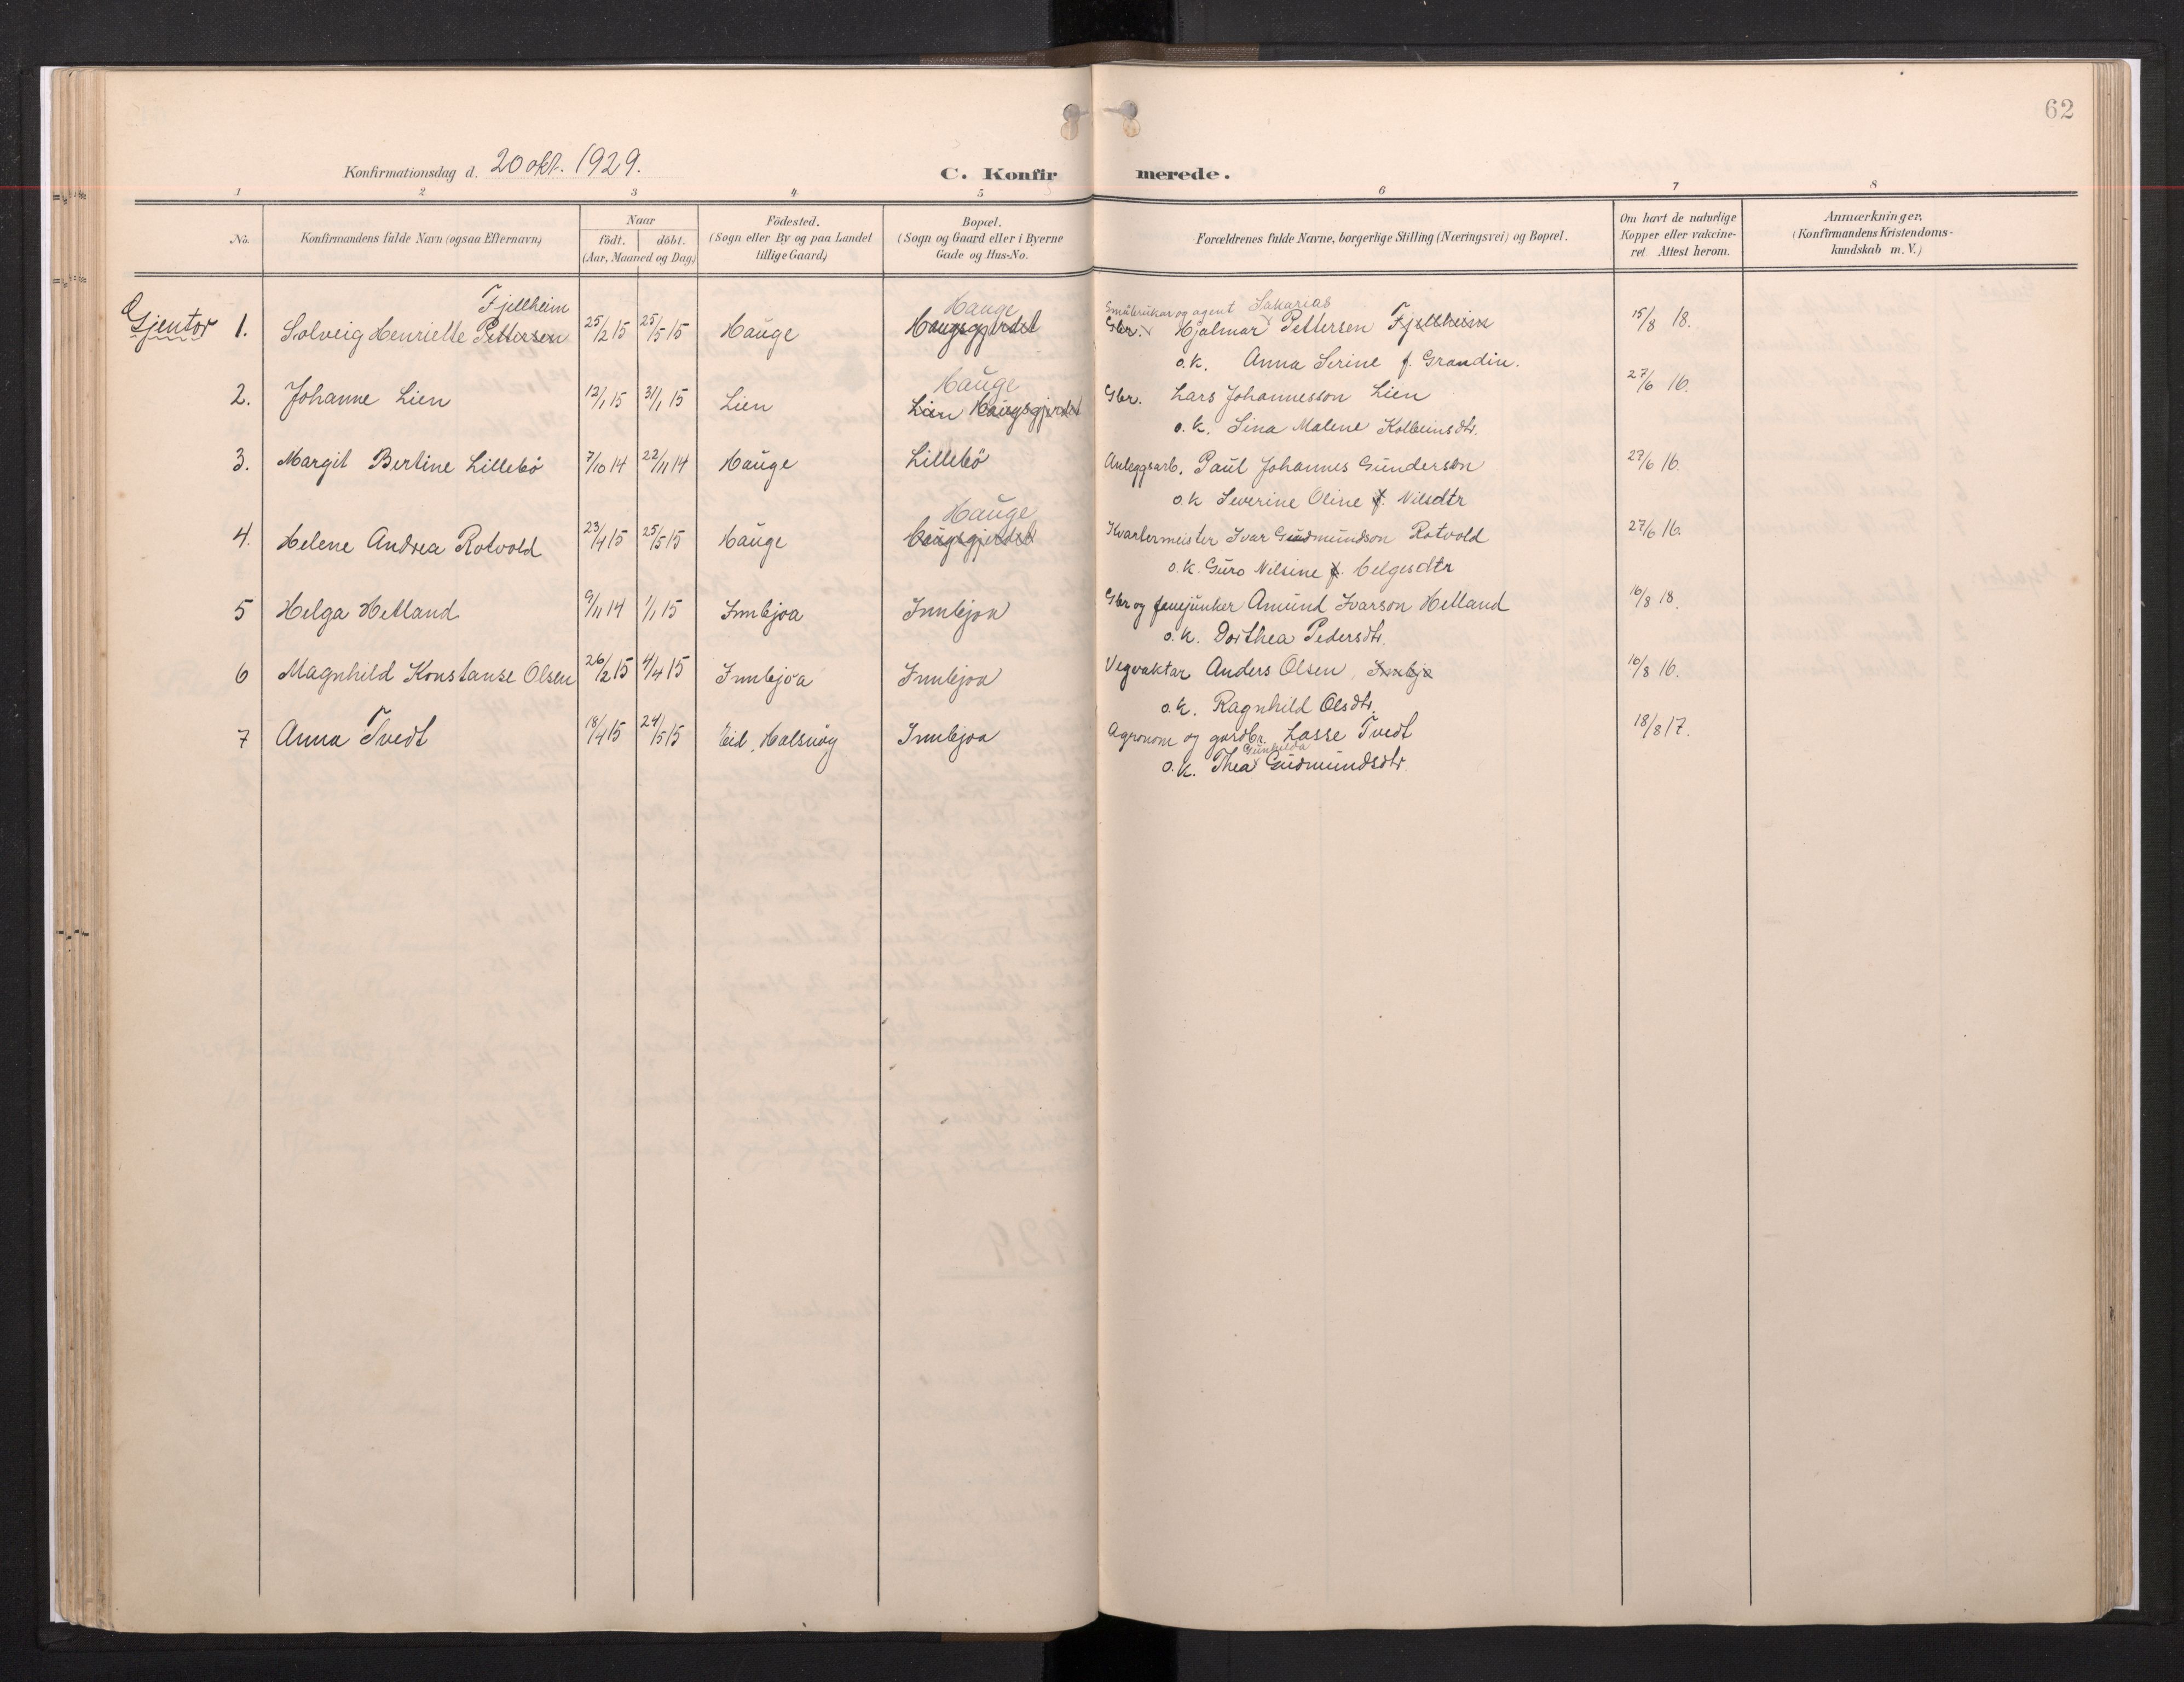 62
Konfirmationsdag d. 20 okt. 1929.
C. Konfirmerede.
1 2 3 4 5 6 7 8
No.
Konfirmandens fulde Navn (ogsaa Efternavn)
Naar
födt. döbt.
(Aar, Maaned og Dag)
Födested.
(Sogn eller By og paa Landet
tillige Gaard)
Bopæl.
(Sogn og Gaard eller i Byerne
Gade og Hus-No.
Forældrenes fulde Navne, borgerlige Stilling (Næringsvei) og Bopæl.
Om havt de naturlige
Kopper eller vakcine-
ret Attest herom.
Anmærkninger.
(Konfirmandens Kristendoms-
kundskab m. V.)
Fjellheim Hauge Småbrukar og agent Sakarias
Gjentor 1. Solveig Henriette Pettersen 25/2 15 25/5 15 Hauge Haugsgjerdet Gbr. Hjalmar Pettersen Fjellheim 15/8 18.
o.k. Anna Serine f. Grandin.
Hauge
2. Johanne Lien 12/1 15 31/1 15 Lien Lien Haugsgjerdet Gbr. Lars Johannesson Lien 27/6 16.
o.k. Lina Malene Kolbeinsdtr.
3. Margit Bertine Lillebö 7/10 14 22/11 14 Hauge Lillebö Anleggsarb. Paul Johannes Gunderson 27/6 16.
o.k Severine Oline f. Nilsdtr
Hauge
4. Helene Andrea Rotvold 23/4 15 25/5 15 Hauge Haugsgjerdet Kvartermeister Ivar Gudmundson Rotvold 27/6 16.
o.k. Guro Nilsine f. Helgesdtr
5 Helga Helland 9/11 14 1/1 15 Innbjoa Innbjoa Gbr og fanejunker Amund Ivarson Helland 16/8 18.
o.k. Dorthea Pedersdtr.
6 Magnhild Konstanse Olsen 26/2 15 4/4 15 Innbjoa Innbjoa Vegvaktar Anders Olsen, Innbjo 16/8 16.
o.k. Ragnhild Olsdtr.
7 Anna Tvedt 18/4 15 24/5 15 Eid, Halsnøy Innbjoa Agronom og gardbr. Lasse Tvedt 18/8 17.
Gunhilda
o.k. Thea Gudmundsdtr.